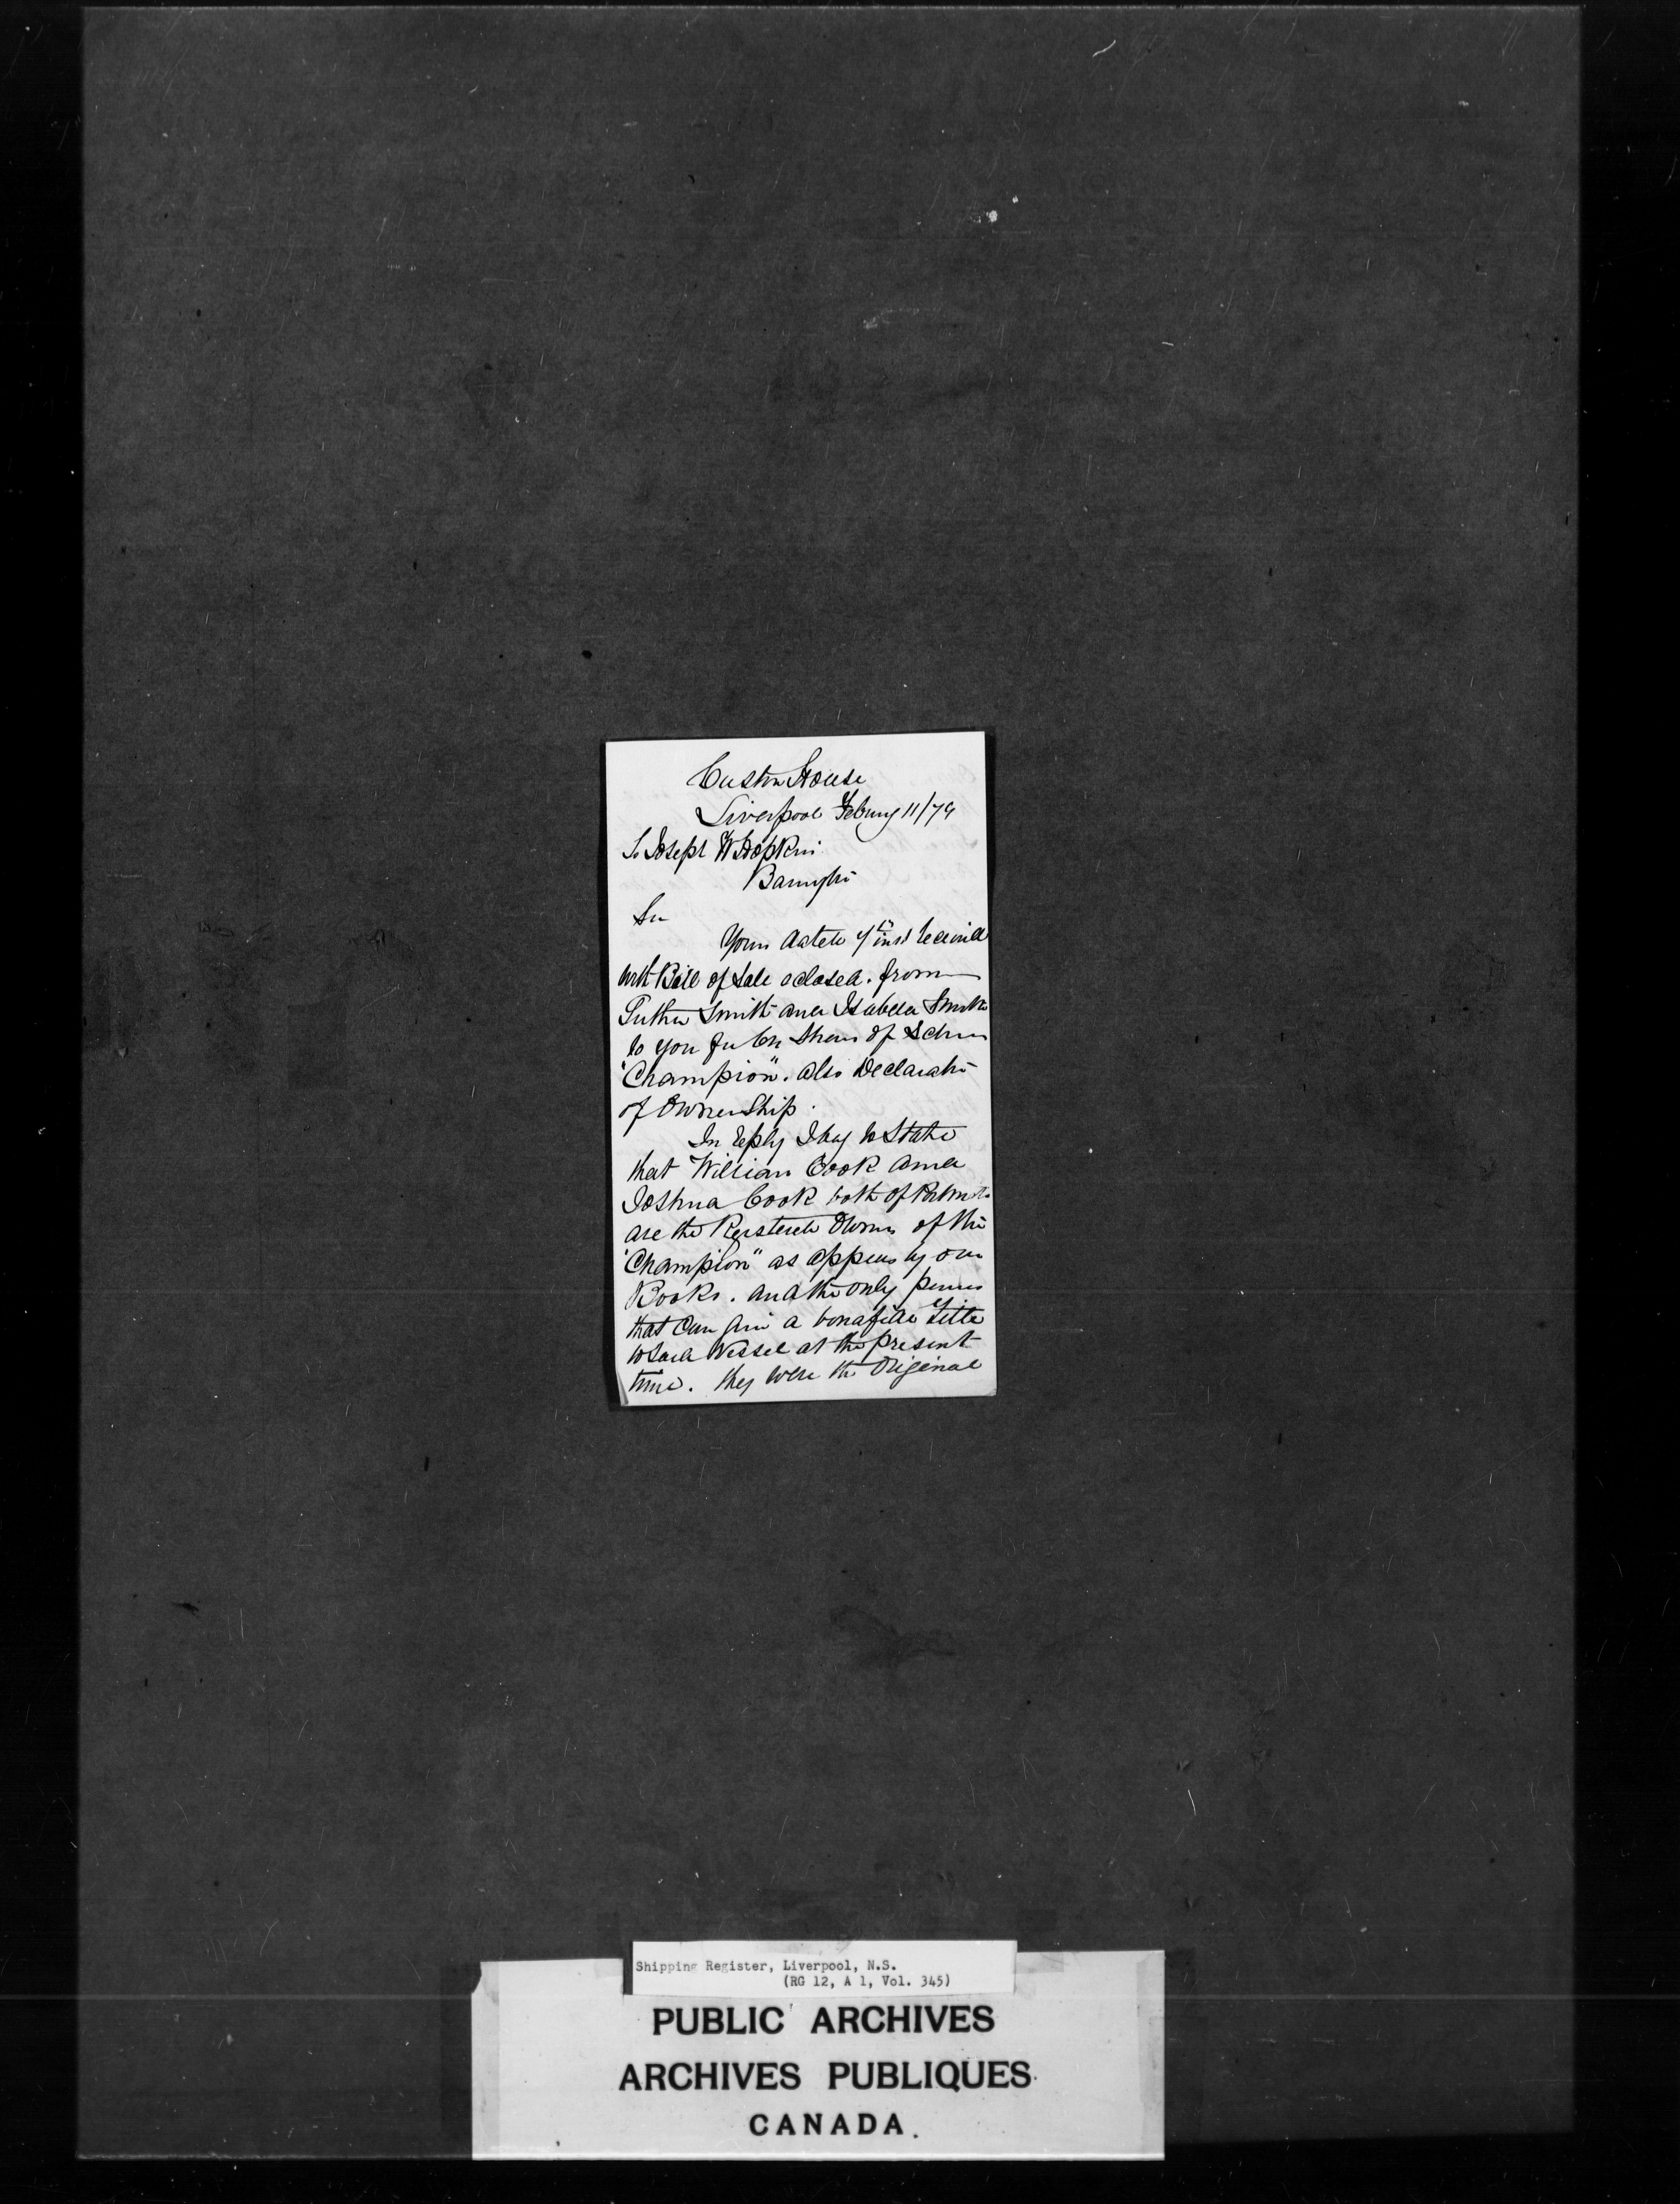 Custom House
Liverpool Febury 11/79
To Joseph W Hopkins
Barrington
Sir
Yours dated 7th inst received
with Bill of Sale eclosed. from
Luther Smith and Isabella Smith
to you for Shares of Schnr
"Champion". also Declaration
of Ownership.
In reply I beg to State
that William Cook and
Joshua Cook both of
are the Registered Owners of the
"Champion" as appears by our
Books. and the only persons
that Can give a bonafide title
to said Vessel at the present
time. they were the Original
Shipping Register, Liverpool, N.S.
(RG 12, A 1, Vol. 345)
PUBLIC ARCHIVES
ARCHIVES PUBLIQUES
CANADA.